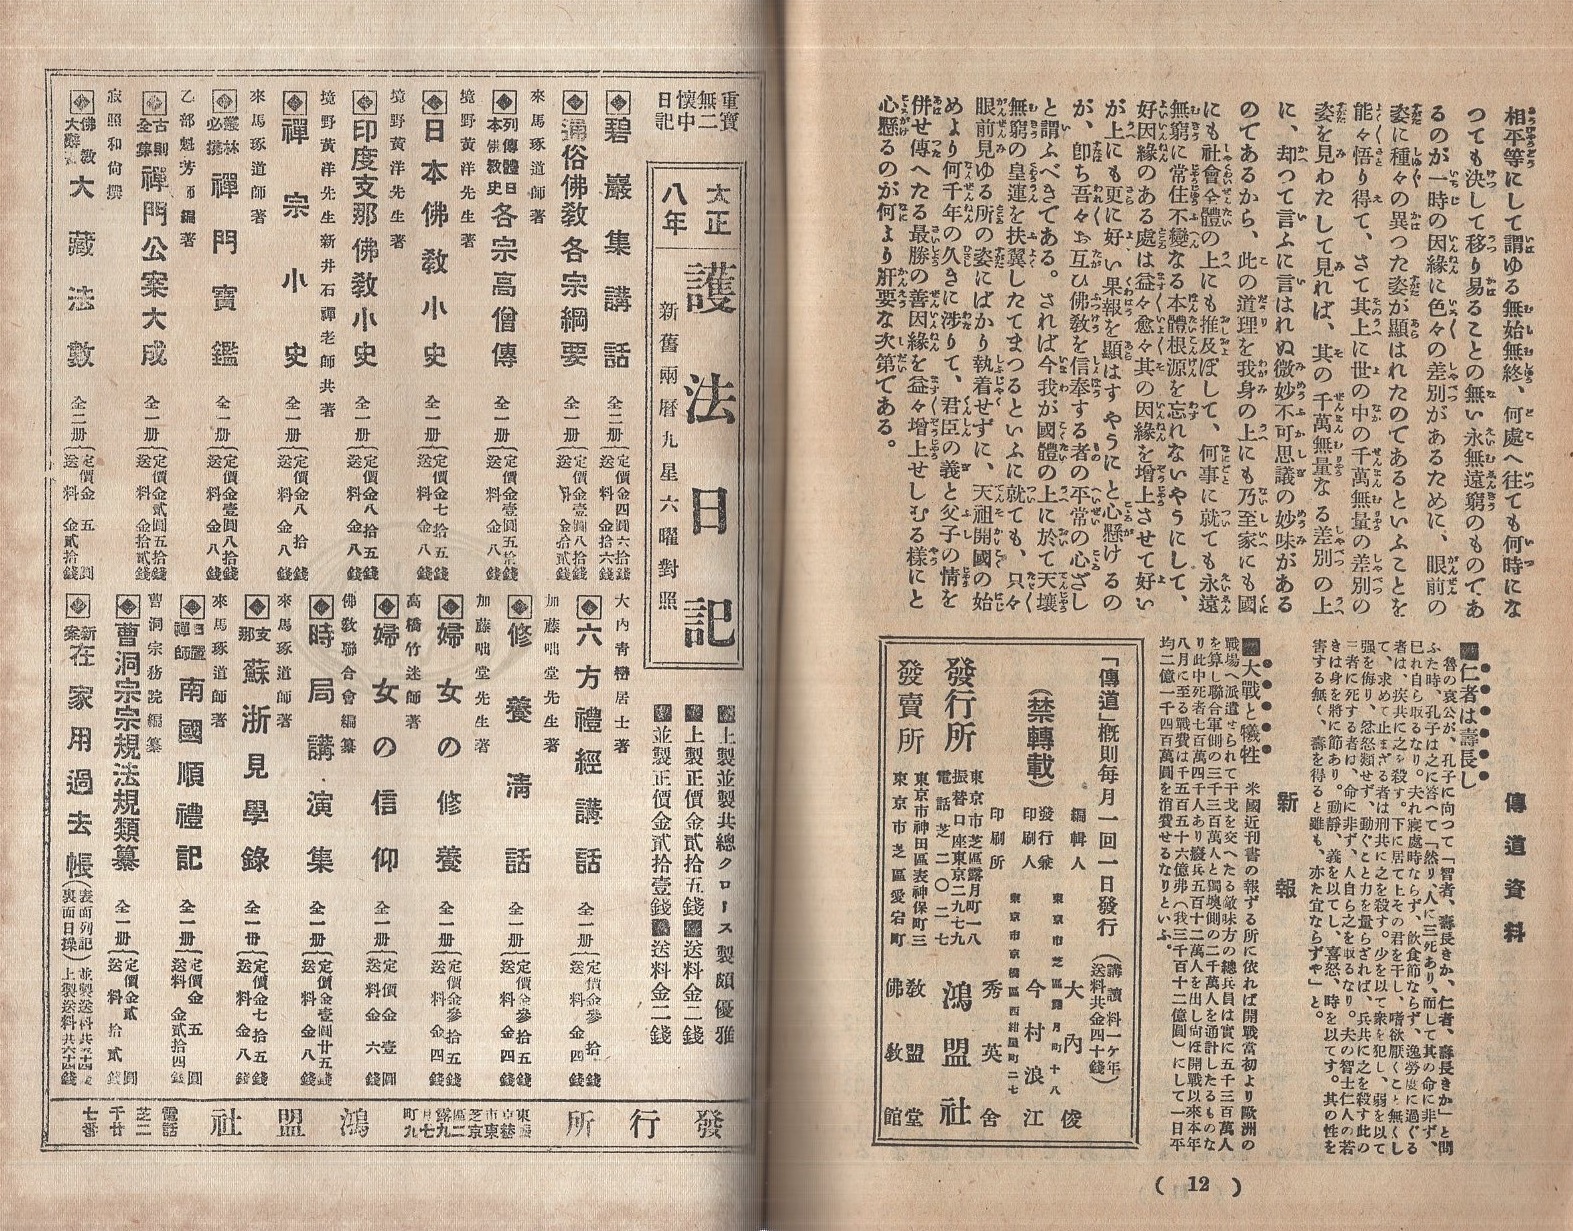 相平等にして謂ゆる無始無終、何處へ往ても何時にな
つても決して移り易ることの無い永無遠窮のものであ
るのが一時の因緣に色々の差別があるために、眼前の
姿に種々の異つた姿が顯はれたのてあるといふことを
能々悟り得て、さて其上に世の中の千萬無量の差別の
姿を見わたして見れば、其の千萬無量なる差別の上
に、却つて言ふに言はれぬ微妙不可思議の妙味がある
のてあるから、此の道理を我身の上にも乃至家にも國
にも社會全體の上にも推及ぼして、何事に就ても永遠
無窮に常住不變なる本體根源を忘れないやうにして、
好因緣のある處は益々愈々其の因緣を增上させて好い
が上にも更に好い果報を顯はすやうにと心懸けるの
が、卽ち吾々お互ひ佛敎を信奉する者の平常の心ざし
と謂ふべきである。されば今我が國體の上に於て天壤
無窮の皇運を扶翼したてまつるといふに就ても、只々
眼前見ゆる所の姿にばかり執着せずに、天祖開國の始
めより何千年の久きに涉りて、君臣の義と父子の情を
併せ傳へたる最勝の善因緣を益々增上せしむる樣にと
心懸るのが何より肝要な次第である。
傳道資料
仁者は壽長し
魯の哀公が、孔子に向つて「智者、壽長きか、仁者、壽長きか」と問
ふた時、孔子は之に答へて「然り、人に三死あり、而して其の命に非ず、
已れ自ら取るなり。夫れ寢處時ならず、飮食節ならず、逸勞度に過ぐる
者は、疾共に之を殺す。下に居て上その君を干し、嗜欲厭くこと無くし
て、求めて止まざる者は刑共に之を殺す。少を以て衆を犯し、弱を以て
强を侮り、忿怒類せず、動くと力を量らざれば、兵共に之を殺す此の
三者に死する者は、命に非ず、人自ら之を取るなり。夫の智士仁人の若
きは身を將に節あり。動靜、義を以てし、喜怒、時を以てす。其の性を
害する無く、壽を得ると雖も、亦た宜ならずや」と。
新報
大戰と犧牲
米國近刊書の報ずる所に依れば開戰當初より歐洲の
戰場へ派遣せられて干戈を交へたる敵味方の總兵員は實に五千三百萬人
を算し聯合軍側の三千三百萬人と獨墺側の二千萬人を通計したるものな
り此中死者七百萬四千人あり癈兵五百十二萬人を出し尙ほ開戰以來本年
八月に至る戰費は千五百五十六億弗(我三千百十二億圓)にして一日平
均二億一千四百萬圓を消費せるなりといふ。
「傳道」槪則每月一回一日發行
(講讀料一ケ年
送料共金四十錢)
(禁轉載)
編輯人
東京市芝區露月町十八
大內俊
發行兼
印刷人
今村浪江
印刷所
東京市京橋區西紺屋町二七
秀英舍
發行所
東京市芝區露月町一八
振替口座東京二九七九
電話芝二〇二七
鴻盟社
發賣所
東京市神田區表神保町三
敎盟堂
東京市芝區愛宕町
佛敎館
( 12 )
重寶
無二
懷中
日記
大正
八年
護法日記
新舊兩曆九星六曜對照
上製並製共總クロース製頗優雅
上製正價金貳拾五錢 送料金二錢
並製正價金貳拾壹錢 送料金二錢
碧巖集講話 全二册 定價金四圓六拾錢 送料金拾六錢
通俗佛敎各宗綱要 全一册 定價金壹圓八拾錢 送料金拾貳錢
來馬琢道師著
列傳體日本佛敎史 各宗高僧傳 全一册 定價金壹圓五拾錢 送料金八錢
境野黃洋先生著
日本佛敎小史 全一册 定價金七拾五錢 送料金八錢
境野黃洋先生著
印度支那佛敎小史 全一册 定價金八拾五錢 送料金八錢
境野黃洋先生新井石禪老師共著
禪宗小史 全一册 定價金八拾錢 送料金八錢
來馬琢道師著
叢林必携 禪門寶鑑 全一册 定價金四圓八拾錢 送料金拾貳錢
乙部魁芳師編著
古則全集 禪門公案大成 全一册 定價金貳圓五拾錢 送料金拾貳錢
寂照和尙撰
佛敎大辭典 大藏法數 全二册 定價金五圓 送料金貳拾錢
大內靑巒居士著
六方禮經講話 全一册 定價金參拾錢 送料金四錢
加藤咄堂先生著
修養淸話 全一册 定價金參拾五錢 送料金四錢
加藤咄堂先生著
婦女の修養 全一册 定價金參拾五錢 送料金四錢
高橋竹迷師著
婦女の信仰 全一册 定價金壹圓 送料金六錢
佛敎聯合會編纂
時局講演集 全一册 定價金壹圓廿五錢 送料金八錢
來馬琢道師著
支那 蘇浙見學錄 全一册 定價金七拾五錢 送料金八錢
來馬琢道師著
南國順禮記 全一册 定價金五圓 送料金貳拾四錢
曹洞宗務院編纂
曹洞宗宗規法規類纂 全一册 定價金貳圓 送料拾貳錢
新案 在家用過去帳
(表面列記
裏面日操)
發行所
東京市芝區露月町
鴻盟社
電話芝二千廿七番